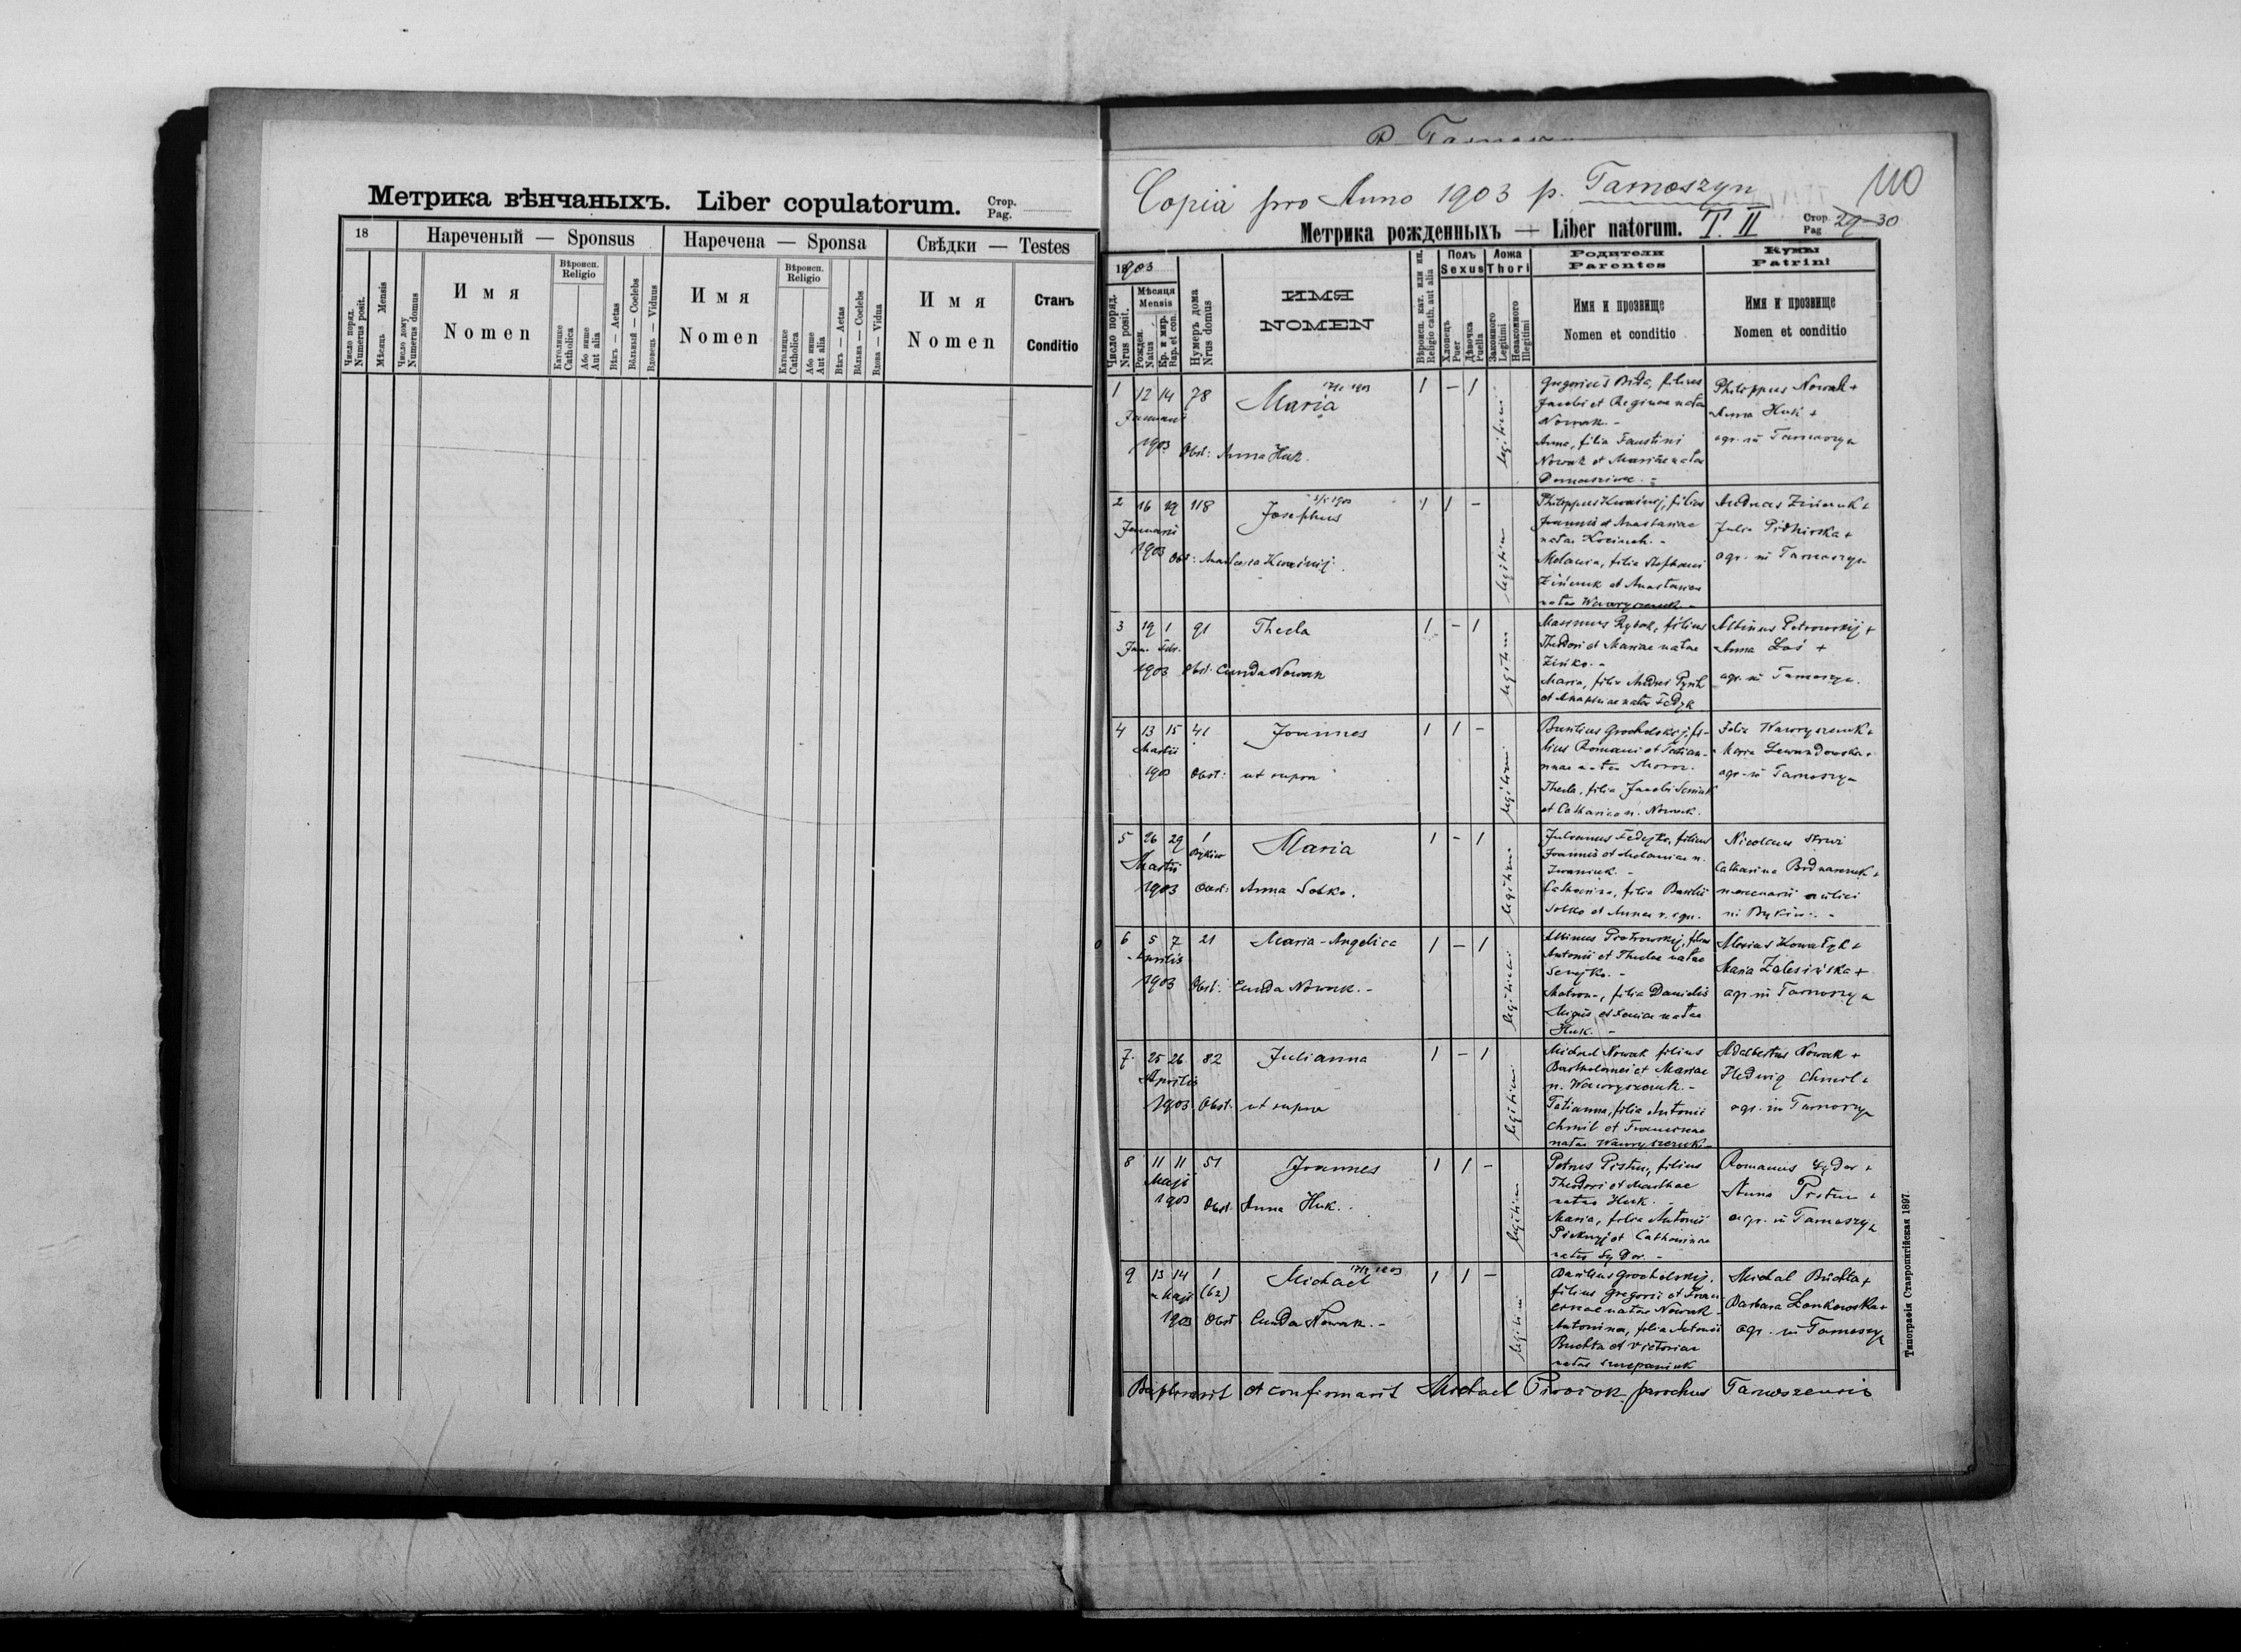 Метрика вѣнчаныхъ. Liber copulatorum.
Стор.
Pag.
18
Нареченый — Sponsus
Наречена — Sponsa
Свѣдки — Testes
Число поряд.
Numerus posit.
Мѣсяць Mensis
Число дому
Numerus domus
Имя
Nomen
Вѣроисп.
Religio
Католицке
Catholica
Або инше
Aut alia
Вѣкъ — Aetas
Вôльный — Coelebs
Вдовець — Viduus
Имя
Nomen
Вѣроисп.
Religio
Католицке
Catholica
Або инше
Aut alia
Вѣкъ — Aetas
Вôльна — Coelebs
Вдова — Vidua
Имя
Nomen
Станъ
Conditio
Copia pro Anno 1903 p. Tarnoszyn
110
Метрика рожденныхъ — Liber natorum. T. II
Стор.
Pag
29-30
1903
Число поряд.
Nrus posit.
Мѣсяця
Mensis
Рожден.
Natus
Кр. и мир.
Bap. et con.
Нумеръ дома
Nrus domus
ИМЯ
NOMEN
Вѣроисп. кат. или ин.
Religio cath. aut alia
Полъ
Sexus
Хлопець
Puer
Дѣвочка
Puella
Ложа
Thori
Законного
Legitimi
Незаконного
Illegitimi
Родители
Parentes
Имя и прозвище
Nomen et conditio
Кумы
Patrini
Имя и прозвище
Nomen et conditio
1 12 14 78 Maria 1 - 1
Januarii
1903 Obst: Anna Huk.
legitimi
Gregorius Buda, filius
Jacobi et Reginae natae
Nowak. -
Anna, filia Faustini
Nowak et Mariae natae
Philippus Nowak +
Anna Huk +
agr. in Tarnoszyn
2 16 19 118 Josephus 1 1 -
Januarii
1903 Obst:
legitimi
filius
Joannis et Anastasiae
natae
Melania, filia Stephani
Zińczuk et Anastasiae
natae Wawryszczuk -
Andreas Zińczuk +
Julia
agr. in Tarnoszyn
3 19 1 91 Thecla 1 - 1
Jan. Febr.
1903 Obst. Cunda Nowak
legitimi
Maximus Rybak, filius
Theodori et Mariae natae
Zińko. -
Maria, filia
natae Fedyk
Albinus Petrowskij +
Anna Łoś +
agr. in Tarnoszyn.
4 13 15 41 Joannes 1 1 -
Martii
1903 Obst: ut supra
legitimi
Basilius Grocholskij, fi-
lius Romani et Tatian-
nae natae Moroz.
Thecla, filia Jacobi
et Catharinae n. Nowak.
Wawryszczuk +
Maria Lewandowska +
agr. in Tarnoszyn
5 26 29 1 Maria 1 - 1
Martii
1903 Obst: Anna Sobko.
legitimi
Julianus Fedejko, filius
Joannis et Melaniae n.
Iwaniuk. -
Catharina, filia Basilii
Sobko et Annae
Nicolaus
Catharina Bodnarczuk +
6 5 7 21 Maria-Angelica 1 - 1
Aprilis
1903 Obst: Cunda Nowak. -
legitimi
Albinus Piotrowskij, filius
Antonii et Theclae natae
Senejko. -
filia Danielis
et Xeniae natae
Huk. -
Alexius Kowałyk +
Maria Zalesińska +
agr in Tarnoszyn
7. 25 26 82 Julianna 1 - 1
Aprilis
1903 Obst. ut supra
legitimi
Michael Nowak filius
Bartholomei et Mariae
n. Wawryszczuk. -
Tatianna, filia Antonii
Chmil et Franciscae
natae Wawryszczuk -
Adalbertus Nowak +
Hedwig Chmil +
agr. in Tarnoszyn
8 11 11 51 Joannes 1 1 -
Maji
1903 Obst. Anna Huk.
legitimi
Petrus Pistun, filius
Theodori et Marthae
natae Huk. -
Maria, filia Antonii
et Catharinae
natae Sydor. -
Romanus Sydor +
Anna Pistun +
agr. in Tarnoszyn
9 13 14 1 Michael 1 1 -
Maji (62)
1903 Obst Cunda Nowak. -
legitimi
Basilius Grocholskij,
filius Gregorii et Fran-
ciscae natae Nowak -
Antonina, filia Antonii
Buchta et Victoriae
natae Szczepaniuk
Michal Buchta +
Barbara Lankowska +
agr. in Tarnoszyn
Baptisavit et confirmavit Michael parochus Tarnoszensis
Типографія Ставропигійская 1897.